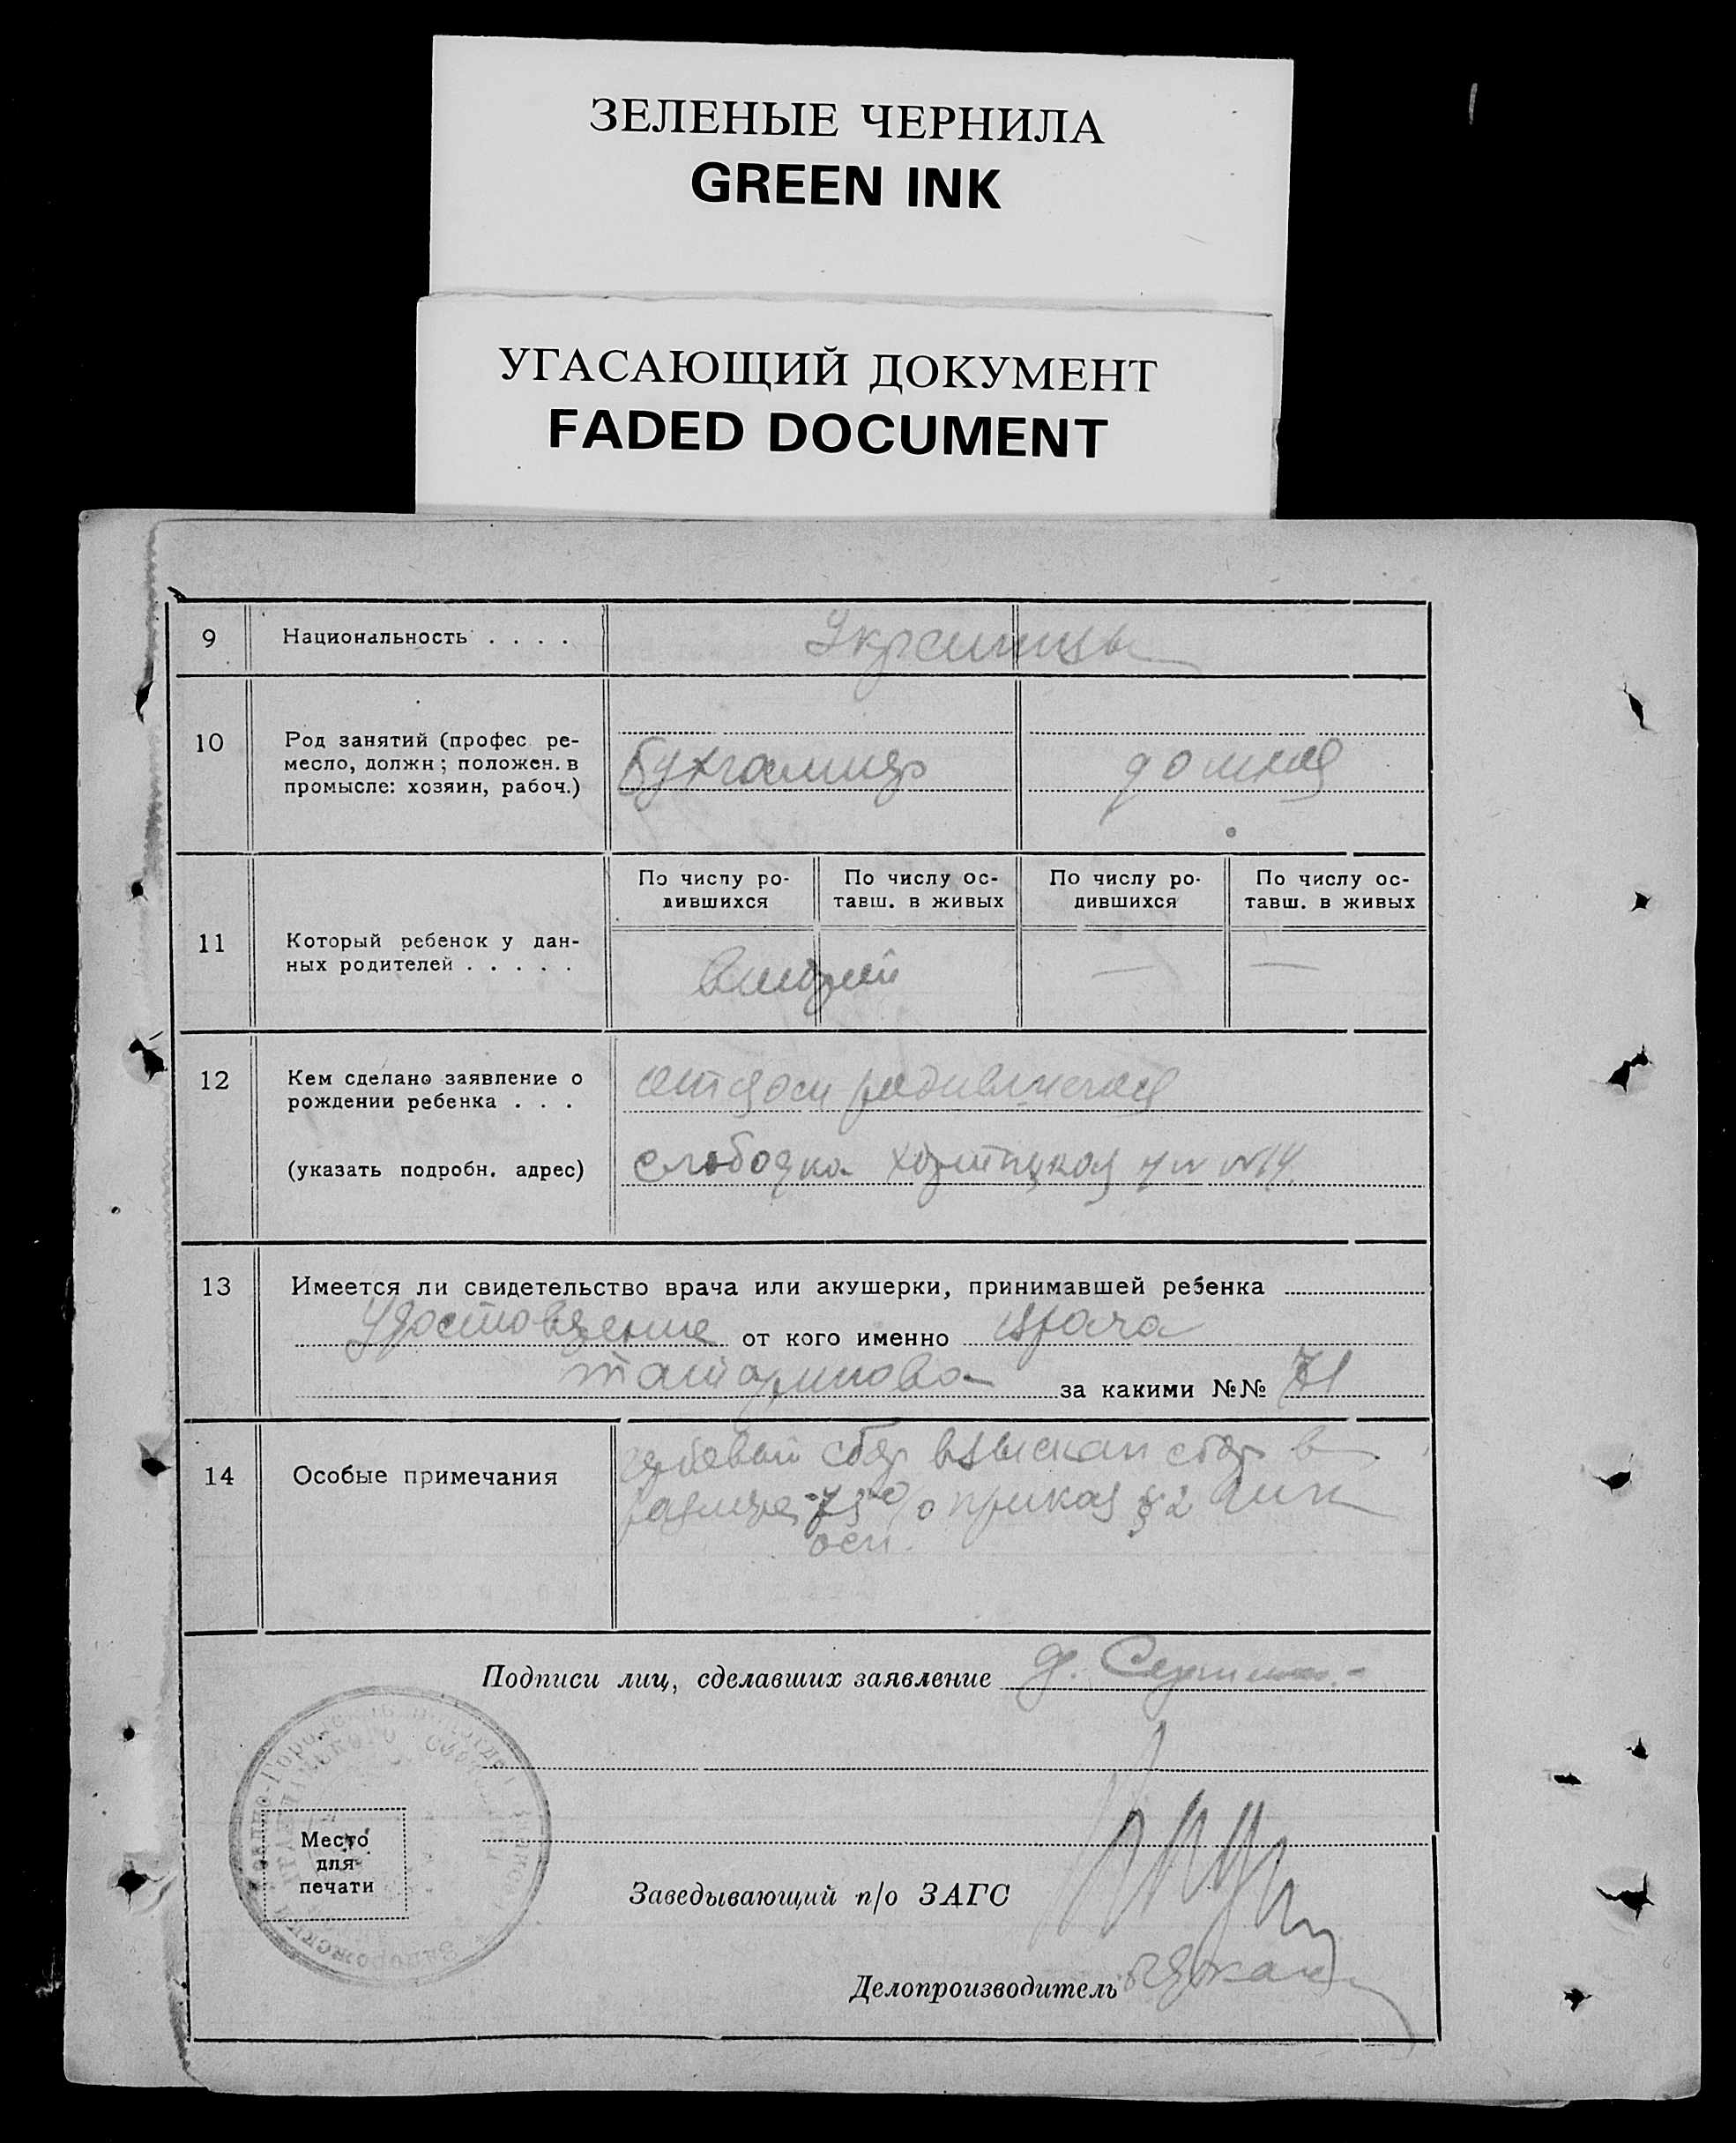 ЗЕЛЕНЫЕ ЧЕРНИЛА
GREEN INK
УГАСАЮЩИЙ ДОКУМЕНТ
FADED DOCUMENT
9 Национальность . . . . Украинцы
10 Род занятий (профес. ре-
месло, должн; положен. в
промысле: хозяин, рабоч.)
Бухгалтер домная
По числу ро-
дившихся
По числу ос-
тавш. в живых
По числу ро-
дившихся
По числу ос-
тавш. в живых
11 Который ребенок у дан-
ных родителей . . . . .
второй — —
12 Кем сделано заявление о
рождении ребенка . . .
отцом
(указать подробн. адрес) слободка Хортицкая № 14
13 Имеется ли свидетельство врача или акушерки, принимавшей ребенка
Удостоверение от кого именно врача
Татаринова за какими №№ 71
14 Особые примечания
сбор взыскан сбор в
размере 75% приказ § 2
Подписи лиц, сделавших заявление
Место
для
печати
Заведывающий п/о ЗАГС
Делопроизводитель